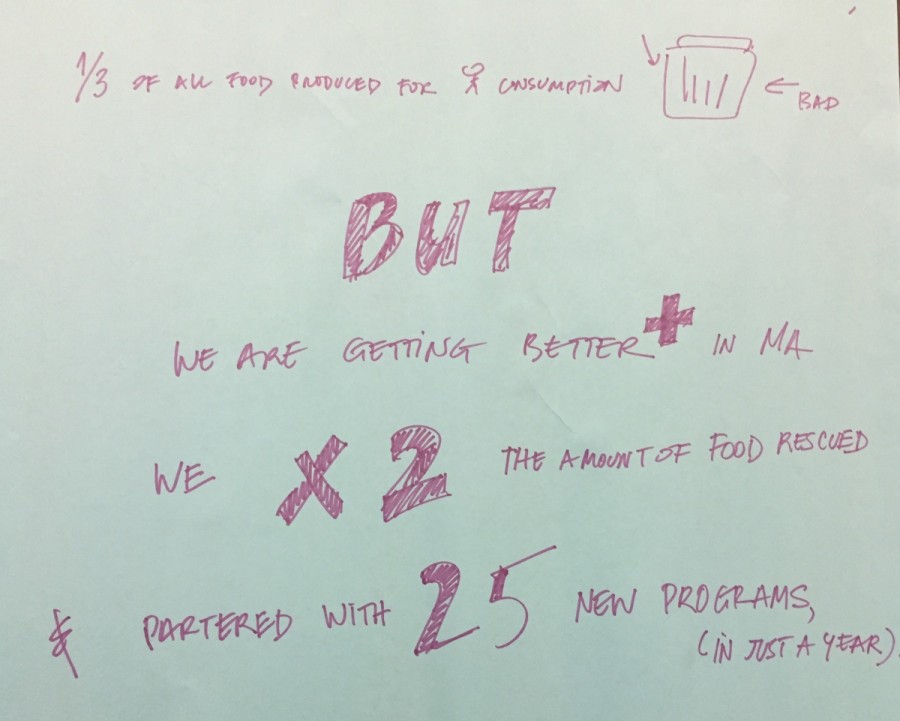 1/3 OF ALL FOOD PRODUCED FOR CONSUMPTION
← BAD
BUT
WE ARE GETTING BETTER+ IN MA
WE X2 THE AMOUNT OF FOOD RESCUED
& PARTERED WITH 25 NEW PROGRAMS,
(IN JUST A YEAR)